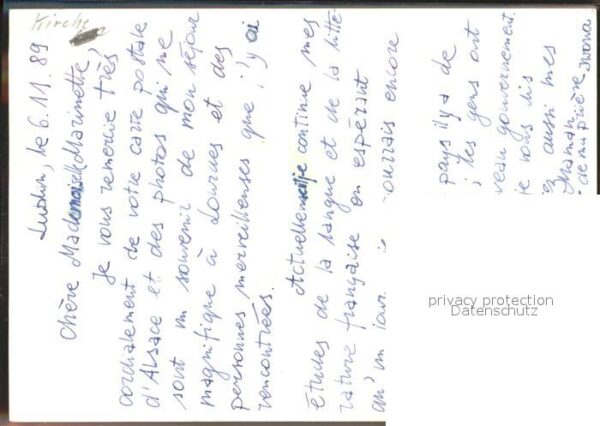 Kirche
Lublin, le 6.11.89
Chère Mademoiselle Marinette,
Je vous remercie très
cordialement de votre carre postale
d'Alsace et des photos qui me
sont un souvenir de mon séjour
magnifique à Lourdes et des
personnes merveilleuses que j'y ai
rencontrées.
Actuellement je continue mes
études de la langue et de la litté-
rature française en espérant
qu'un jour je pourrais encore
pays il y a de
les gens ont
veau gouvernement.
je vous dis
aussi mes
Maman
de ma prière
Iwona
privacy protection
Datenschutz